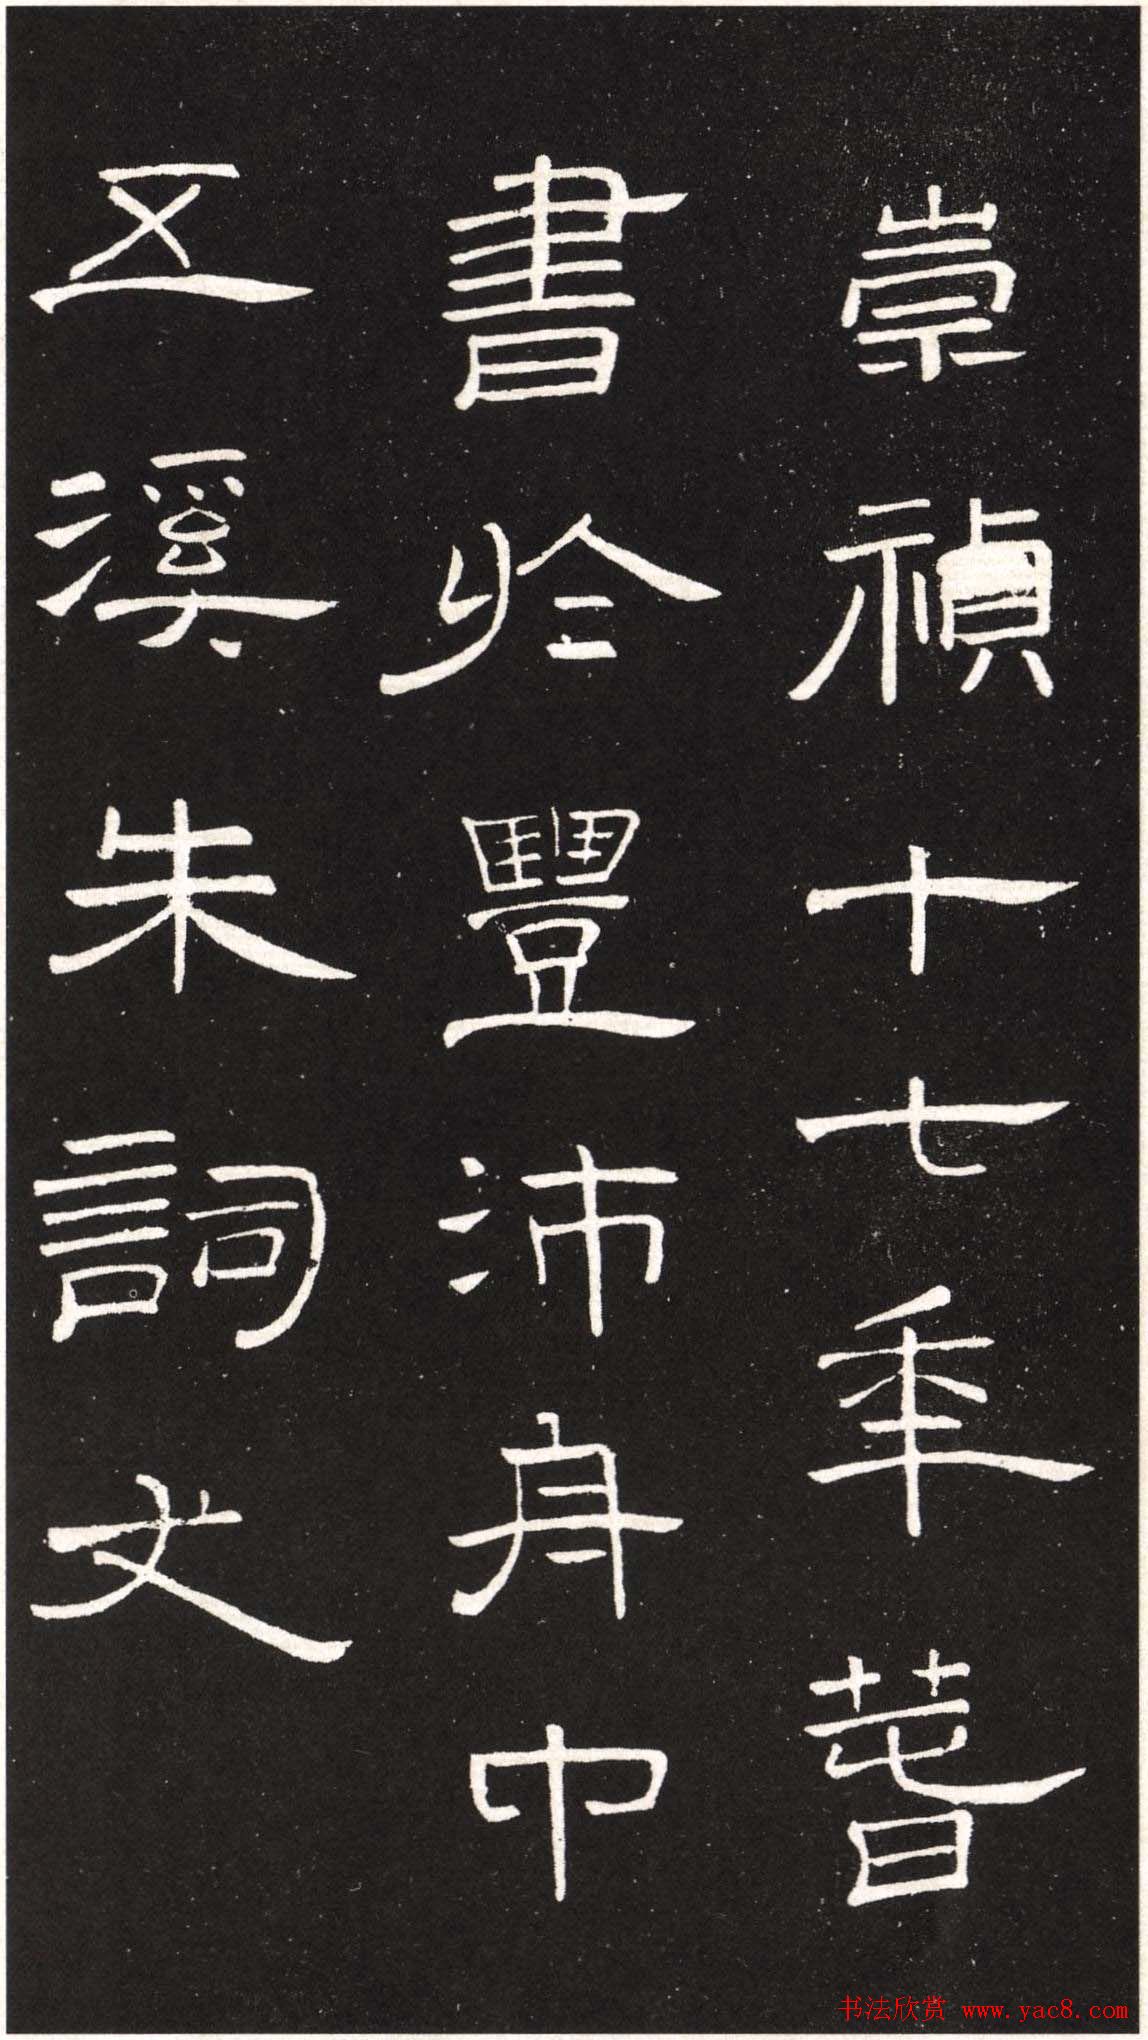 崇禎十七年萅
書於豐沛舟中
五溪朱詞文
书法欣赏 www.yac8.com